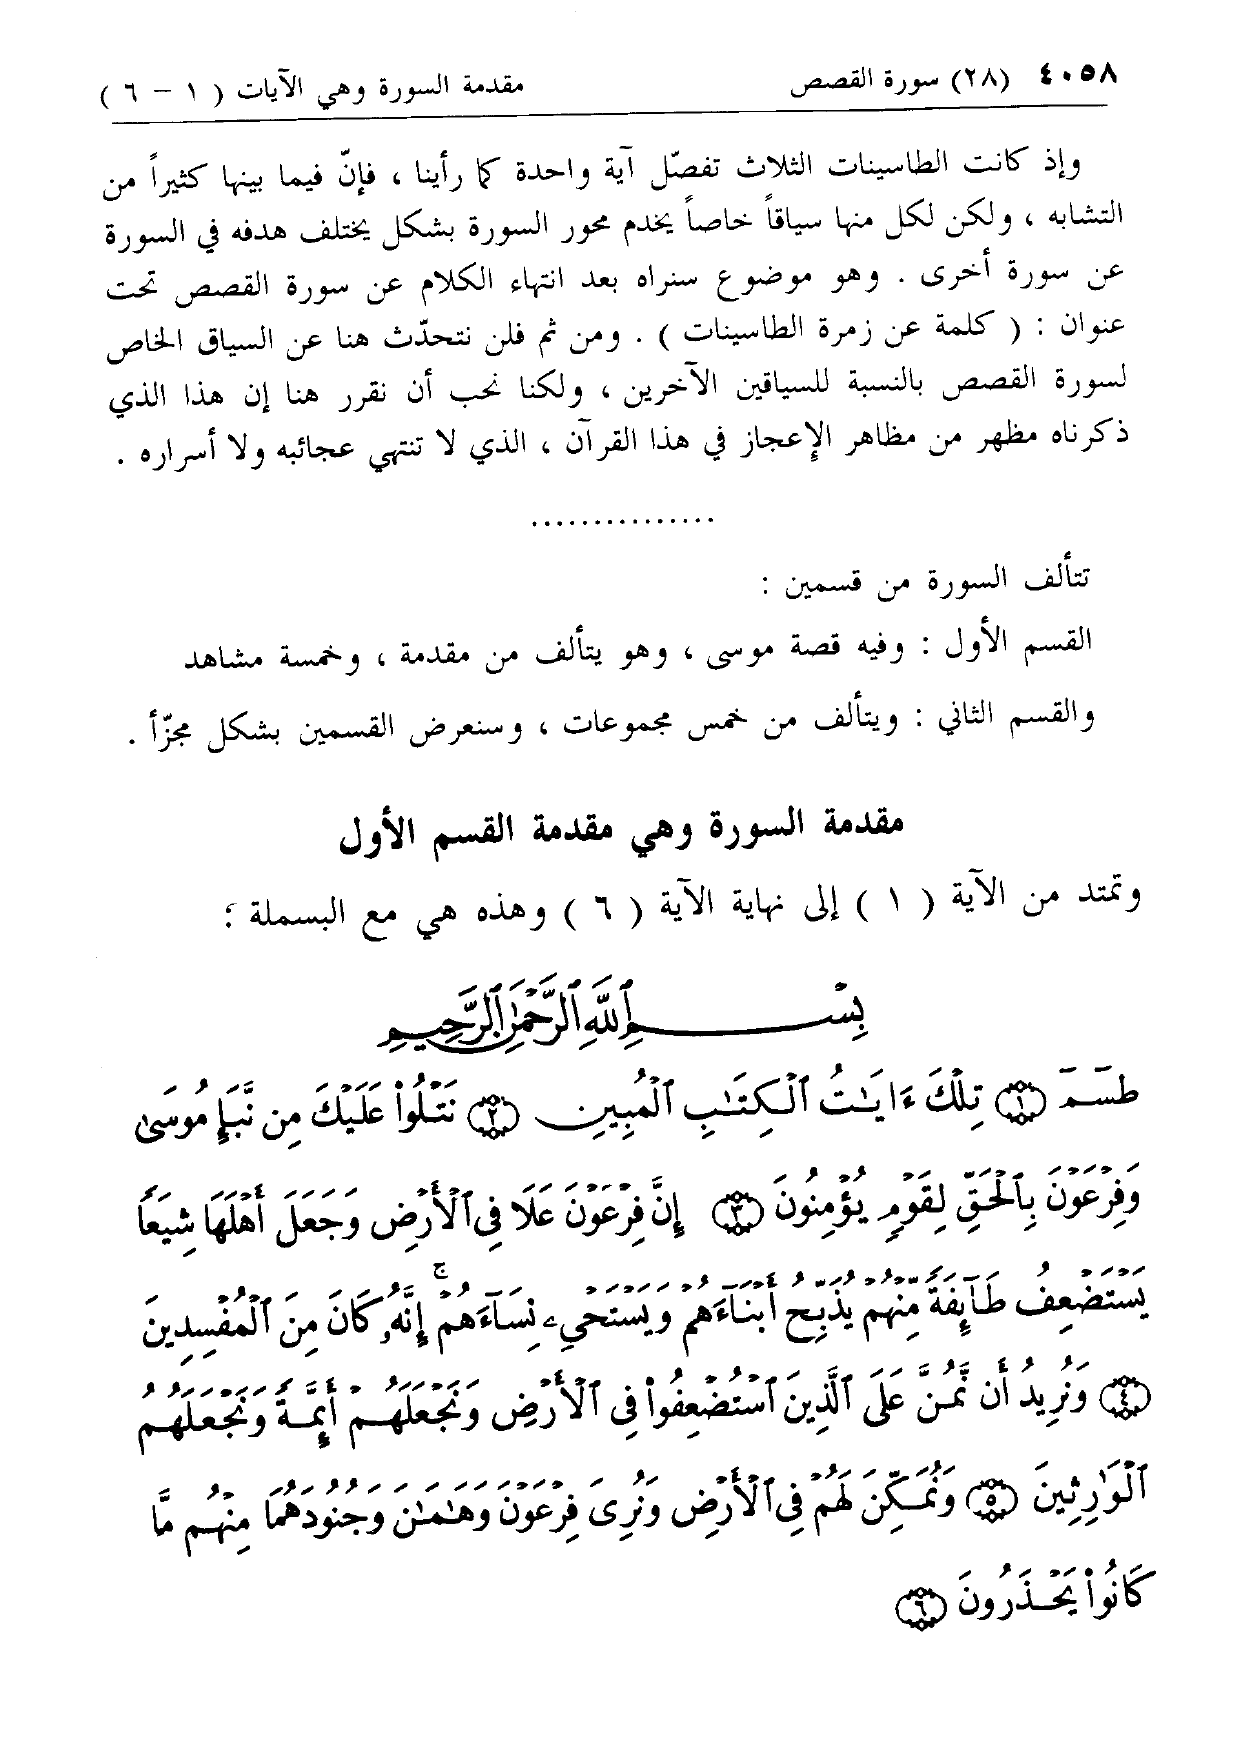 ٤٠٥٨ (٢٨) سورة القصص مقدمة السورة وهي الآيات ( ١ – ٦ )
وإذ كانت الطاسينات الثلاث تفصّل آية واحدة كما رأينا ، فإنّ فيما بينها كثيراً من
التشابه ، ولكن لكل منها سياقاً خاصاً يخدم محور السورة بشكل يختلف هدفه في السورة
عن سورة أخرى . وهو موضوع سنراه بعد انتهاء الكلام عن سورة القصص تحت
عنوان : ( كلمة عن زمرة الطاسينات ) . ومن ثم فلن نتحدّث هنا عن السياق الخاص
لسورة القصص بالنسبة للسياقين الآخرين ، ولكنا نحب أن نقرر هنا إن هذا الذي
ذكرناه مظهر من مظاهر الإعجاز في هذا القرآن ، الذي لا تنتهي عجائبه ولا أسراره .
...............
تتألف السورة من قسمين :
القسم الأول : وفيه قصة موسى ، وهو يتألف من مقدمة ، وخمسة مشاهد
والقسم الثاني : ويتألف من خمس مجموعات ، وسنعرض القسمين بشكل مجزّأ .
مقدمة السورة وهي مقدمة القسم الأول
وتمتد من الآية ( ١ ) إلى نهاية الآية ( ٦ ) وهذه هي مع البسملة :
بِسْمِ ٱللَّهِ ٱلرَّحْمَٰنِ ٱلرَّحِيمِ
طسٓمٓ ١ تِلْكَ ءَايَٰتُ ٱلْكِتَٰبِ ٱلْمُبِينِ ٢ نَتْلُوا۟ عَلَيْكَ مِن نَّبَإِ مُوسَىٰ
وَفِرْعَوْنَ بِٱلْحَقِّ لِقَوْمٍ يُؤْمِنُونَ ٣ إِنَّ فِرْعَوْنَ عَلَا فِى ٱلْأَرْضِ وَجَعَلَ أَهْلَهَا شِيَعًا
يَسْتَضْعِفُ طَآئِفَةً مِّنْهُمْ يُذَبِّحُ أَبْنَآءَهُمْ وَيَسْتَحْىِۦ نِسَآءَهُمْ ۚ إِنَّهُۥ كَانَ مِنَ ٱلْمُفْسِدِينَ
٤ وَنُرِيدُ أَن نَّمُنَّ عَلَى ٱلَّذِينَ ٱسْتُضْعِفُوا۟ فِى ٱلْأَرْضِ وَنَجْعَلَهُمْ أَئِمَّةً وَنَجْعَلَهُمُ
ٱلْوَٰرِثِينَ ٥ وَنُمَكِّنَ لَهُمْ فِى ٱلْأَرْضِ وَنُرِىَ فِرْعَوْنَ وَهَٰمَٰنَ وَجُنُودَهُمَا مِنْهُم مَّا
كَانُوا۟ يَحْذَرُونَ ٦